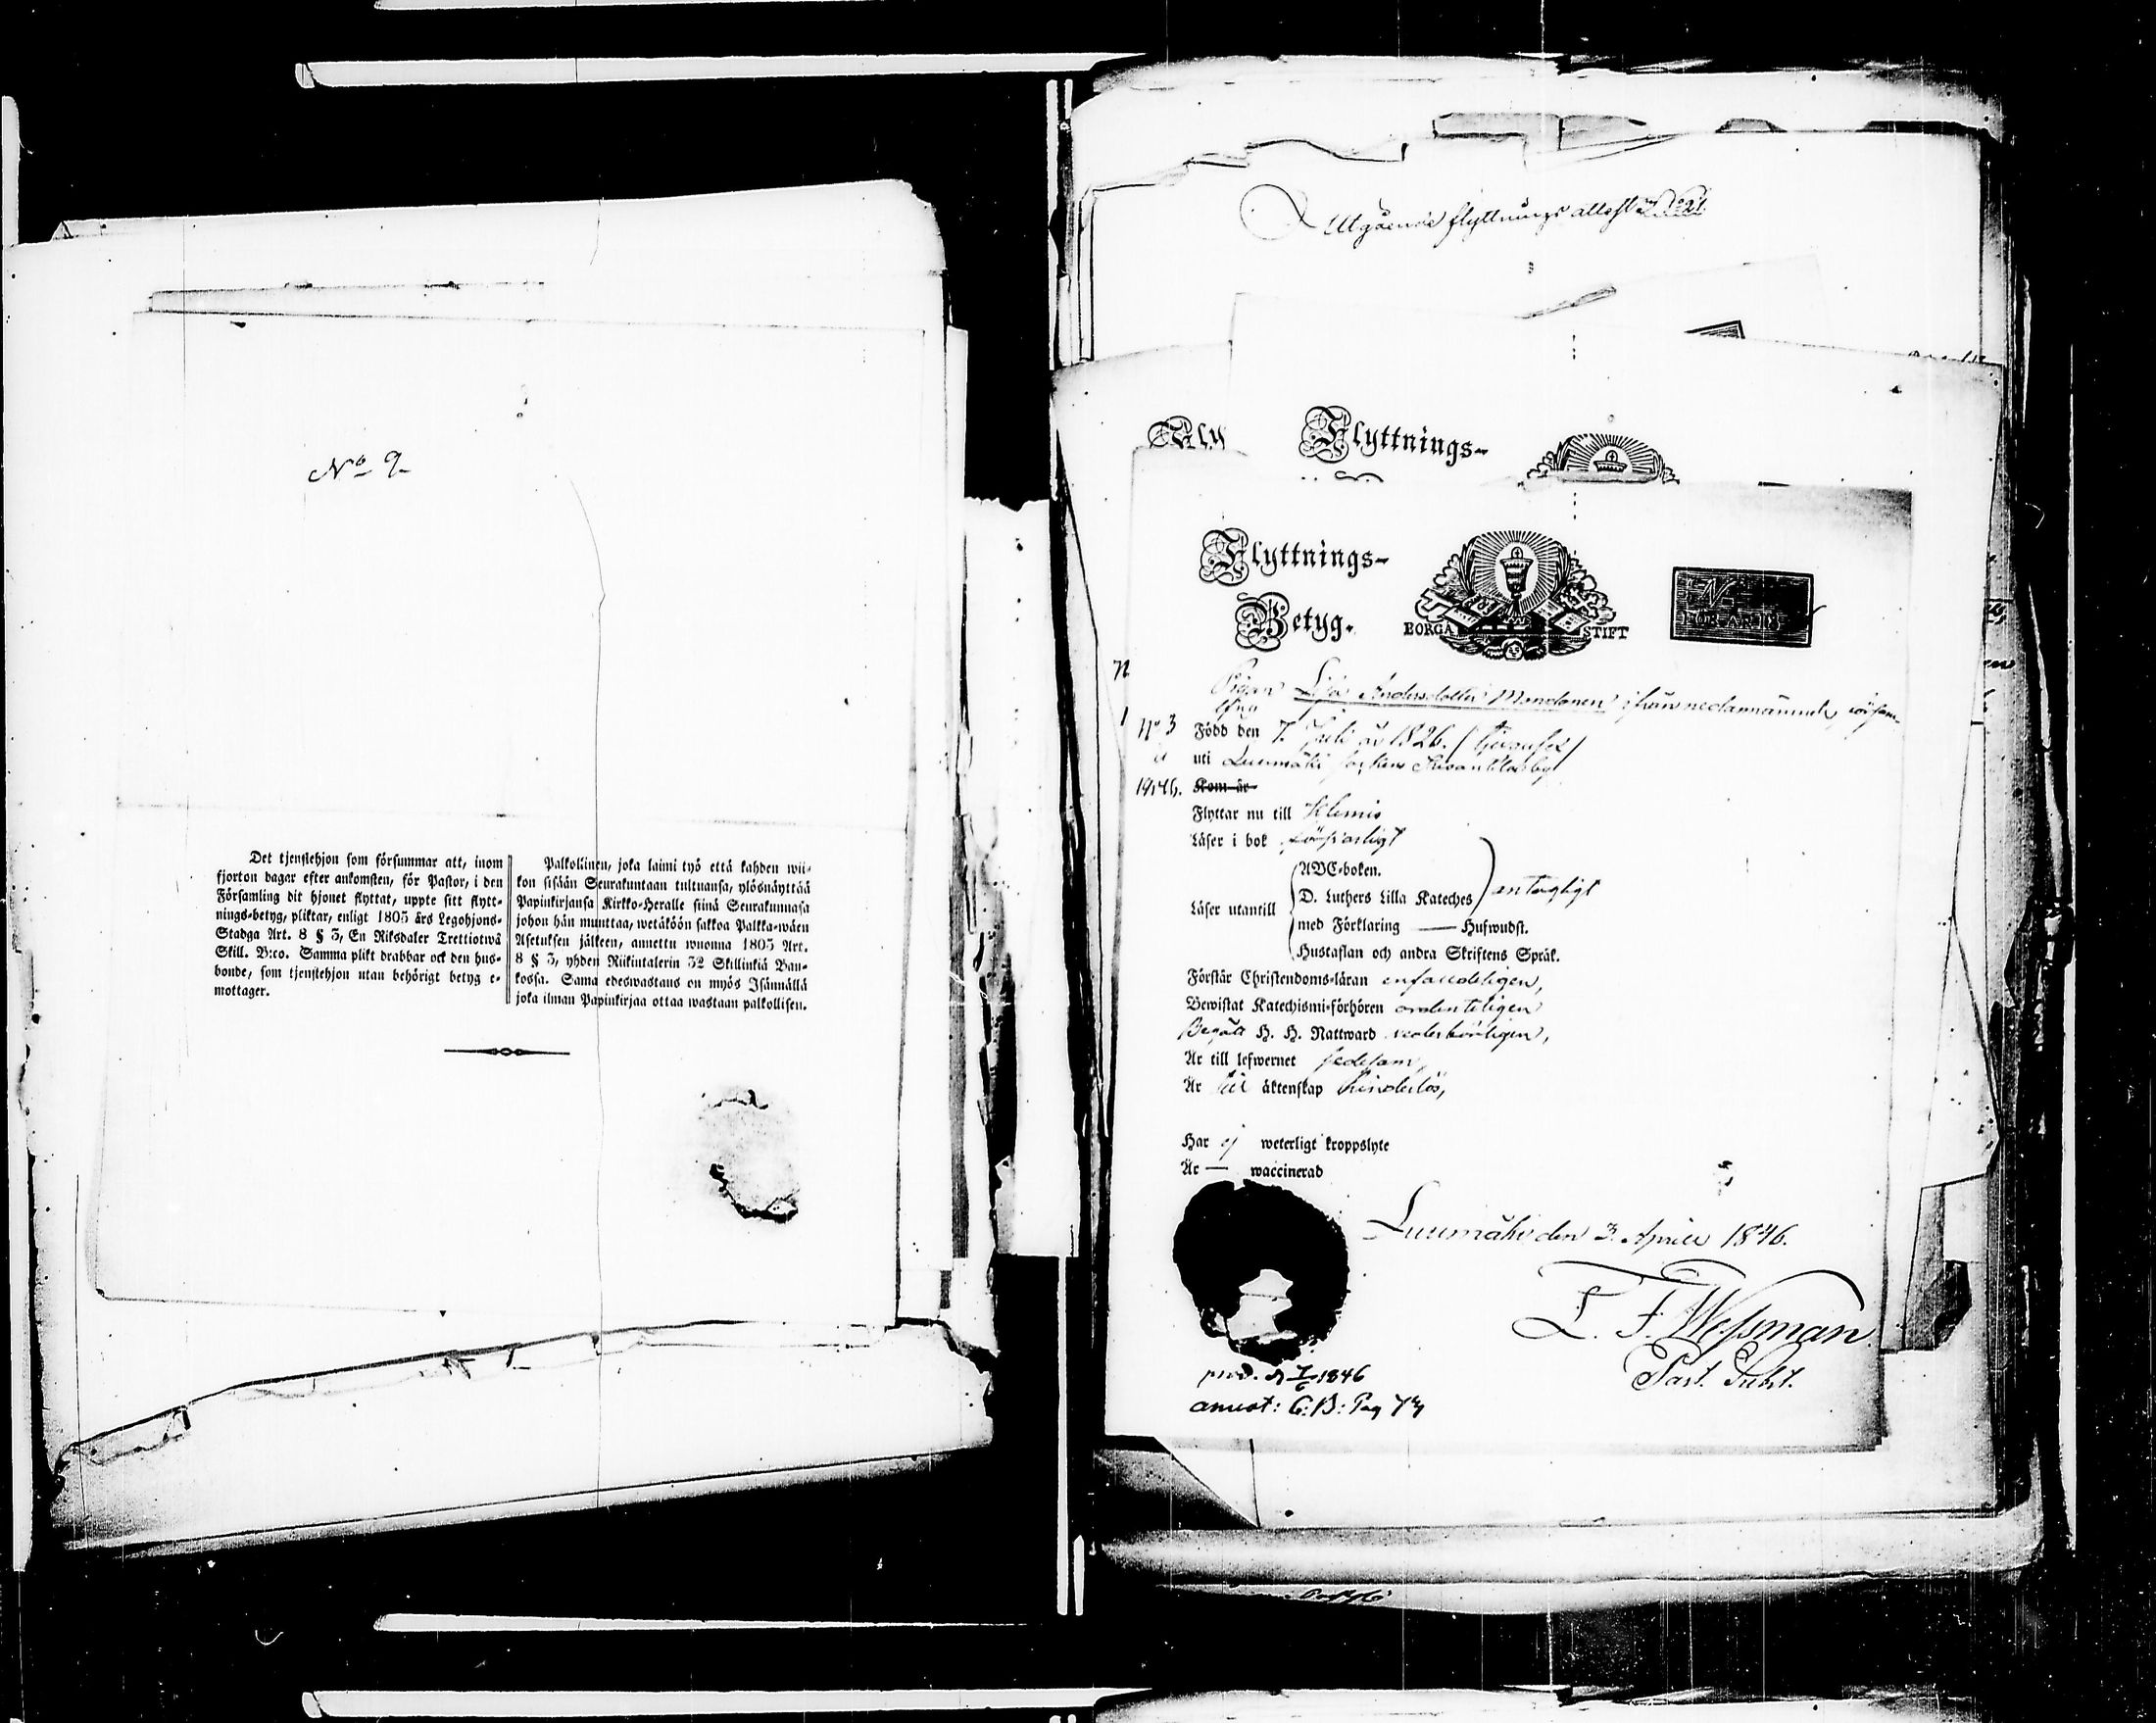 No 9.
Det tjenstehjon som försummar att, inom
fjorton dagar efter ankomsten, för Pastor, i den
Församling dit hjonet flyttat, uppte sitt flytt-
nings-betyg, pliktar, enligt 1805 års Legohjons-
Stadga Art. 8 § 3, En Riksdaler Trettiotwå
Skill. B:co. Samma plikt drabbar ock den hus-
bonde, som tjenstehjon utan behörigt betyg e-
mottager.
Palkollinen, joka laimi lyö että kahden wii-
kon sisään Seurakuntaan tultuansa, ylösnäyttää
Papinkirjansa Kirkko-Heralle siinä Seurakunnasa
johon hän muuttaa, wetäköön sakkoa Palkka-wäen
Asetuksen jälkeen, annettu wuonna 1805 Art.
8 § 3, yhden Riikintalerin 32 Skillinkiä Ban-
kossa. Sama edeswastaus on myös Isännällä
joka ilman Papinkirjaa ottaa wastaan palkollisen.
Utgående flyttnings attest
Fly
Flyttnings-
Flyttnings-
Betyg.
BORGÅ STIFT
N
FÖR ÅR 18
Pigan Lisa Andersdotter Mondonen ifrån nedannämnde försam-
ling
No 3 Född den 7. Juli år 1826.
uti Luumäki sockens by
1846. Kom år
Flyttar nu till Klemis
Läser i bok försvarligt
Läser utantill
ABC-boken.
D. Luthers Lilla Kateches antagligt
med Förklaring — Hufwudst.
Hustaflan och andra Skriftens Språk.
Förstår Christendoms-läran enfaldeligen,
Bewistat Katechismi-förhören ordenteligen
Begått H. H. Nattward wederbörligen,
Är till lefwernet sedesam,
Är till äktenskap hinderlös,
Har ej weterligt kroppslyte
Är — waccinerad
Luumäki den 3. April 1846.
L. F. Wessman
Past. Subst.
prod. d 7/6 1846
annot: C: B: Pag